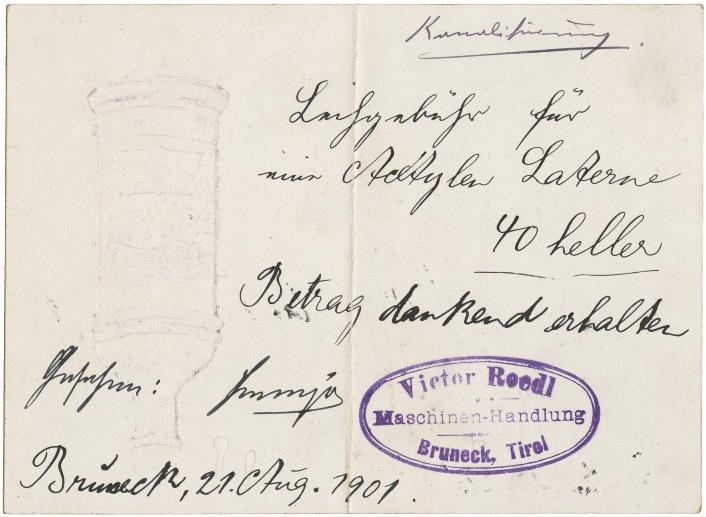 Kanalisierung.
Lechgebühr für
eine Acetylen Laterne
40 heller
Betrag dankend erhalten
Gesehen:
Victor Roedl
Maschinen-Handlung
Bruneck, Tirol
Bruneck, 21. Aug. 1901.